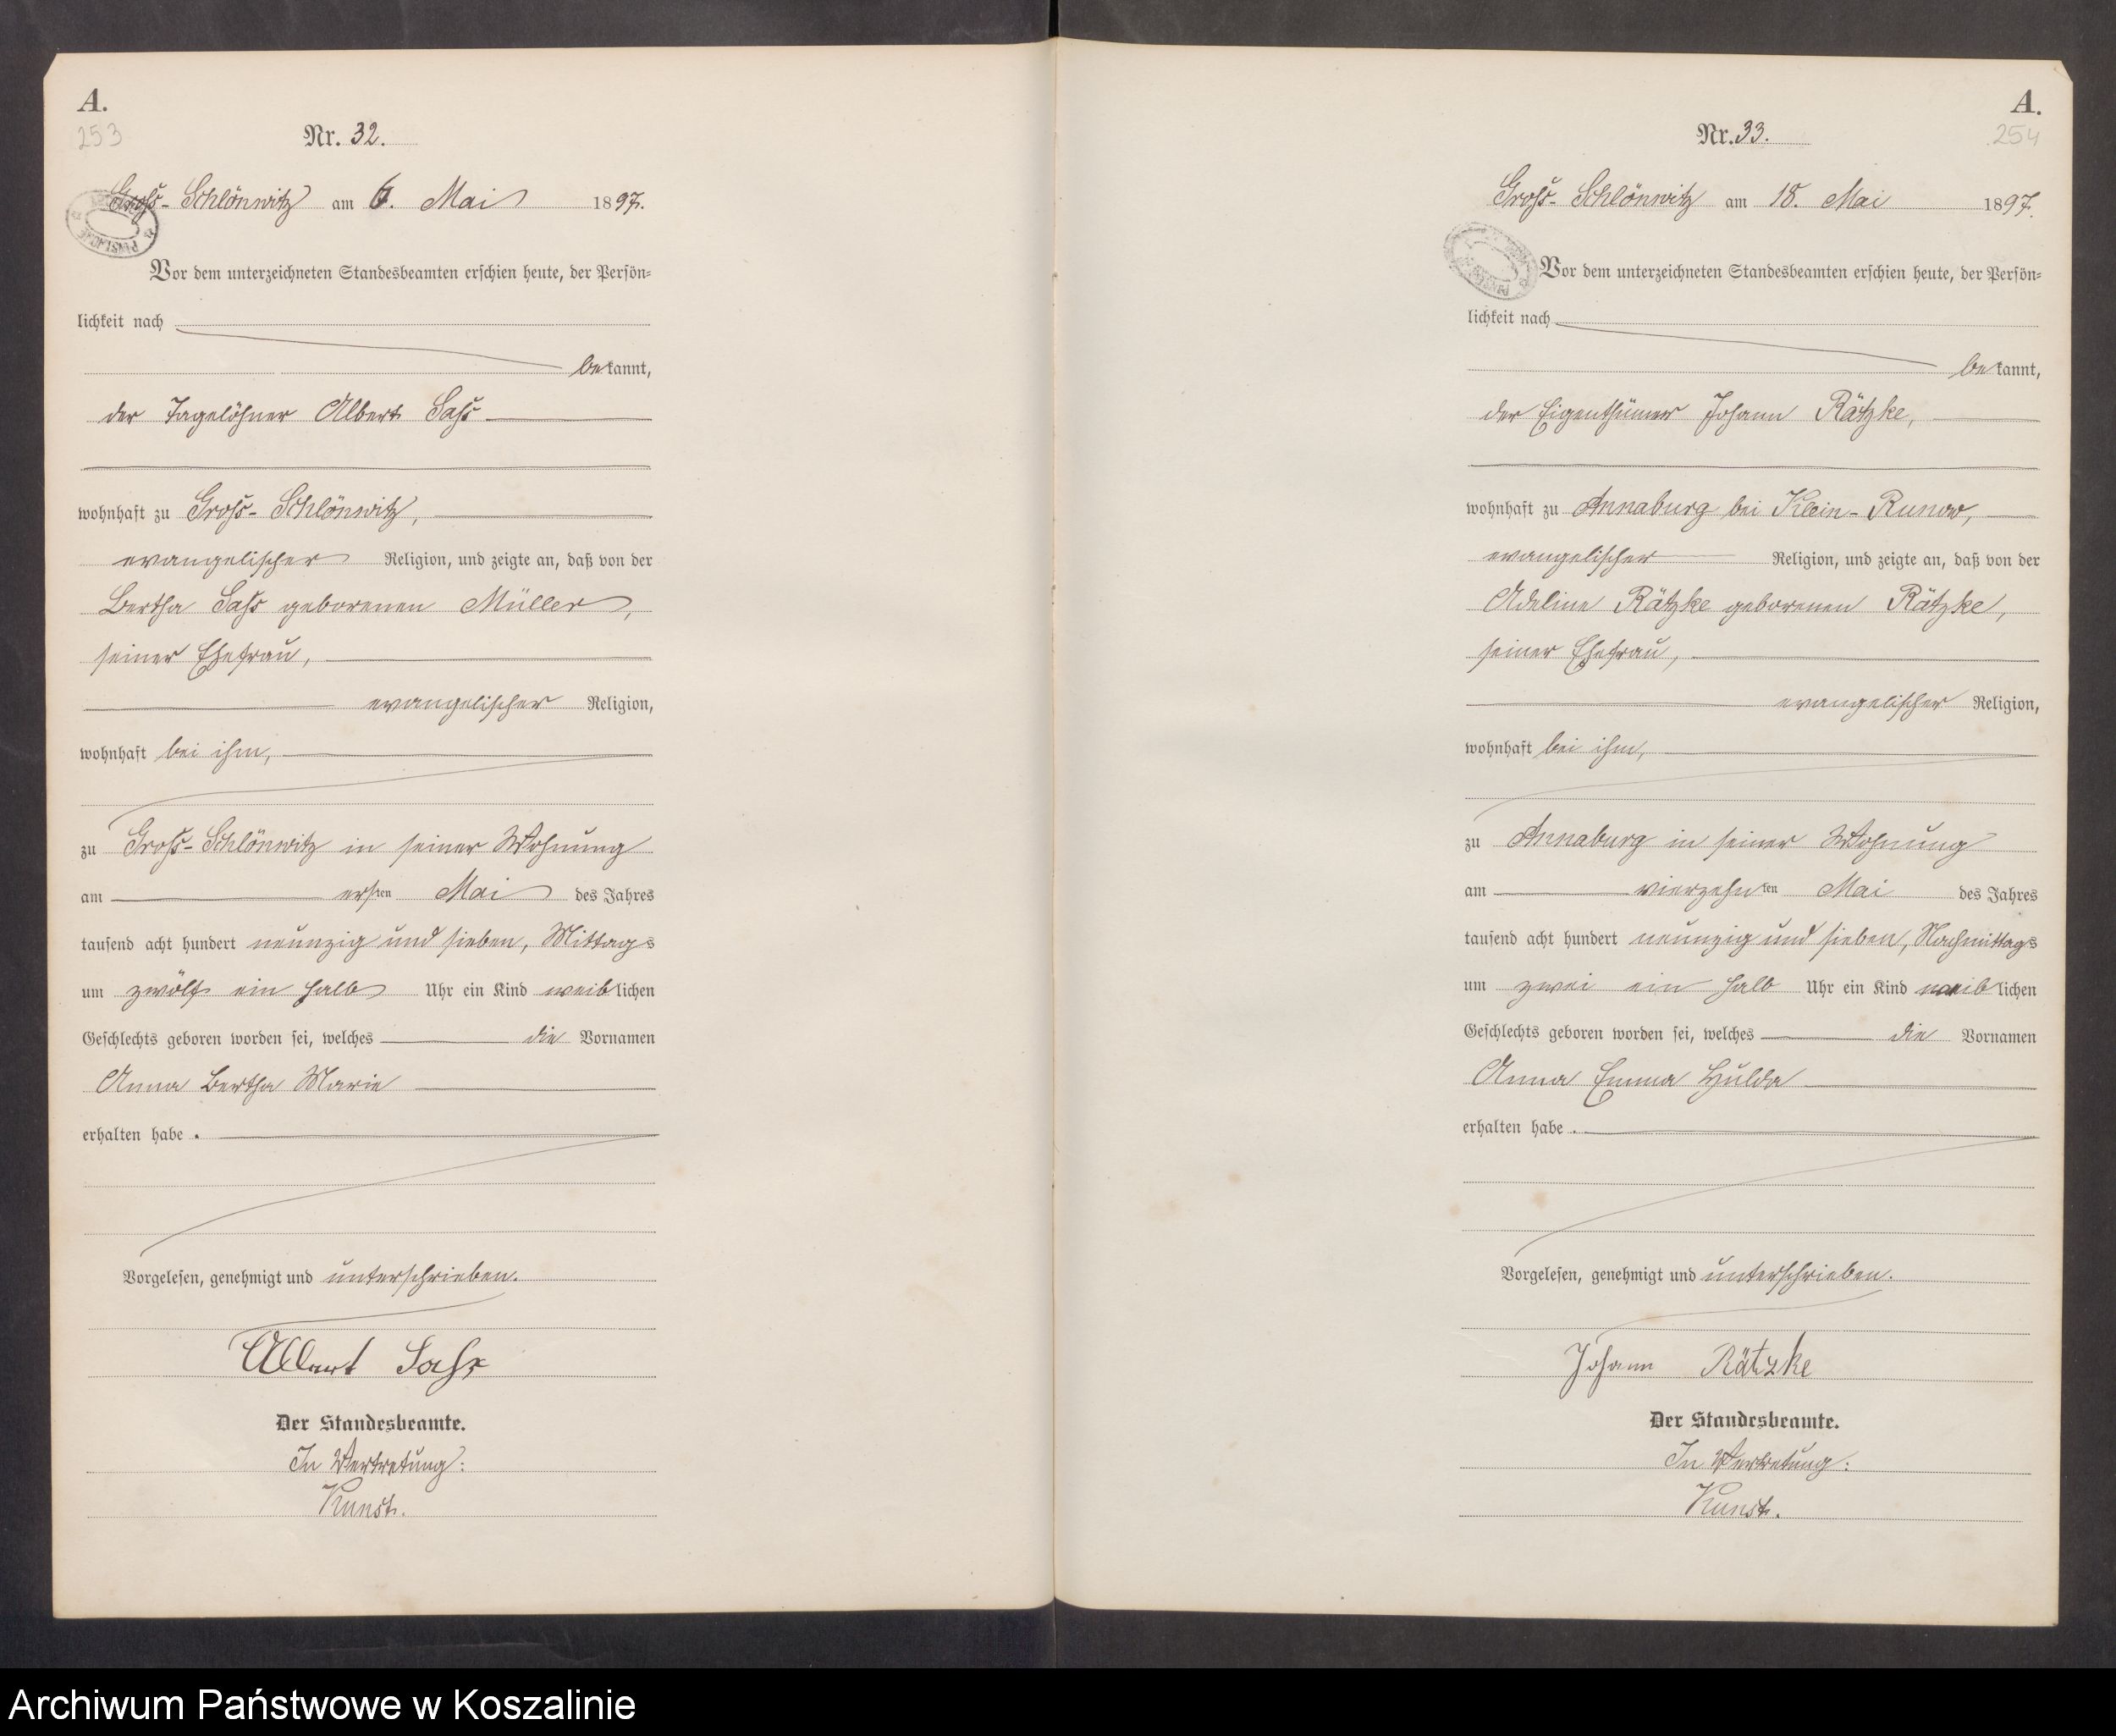 A.
253
Nr. 32.
Groß-Schlönwitz am 6. Mai 1897.
Vor dem unterzeichneten Standesbeamten erschien heute, der Persön-
lichkeit nach
bekannt,
der Tagelöhner Albert Saß
wohnhaft zu Groß-Schlönwitz,
evangelischer Religion, und zeigte an, daß von der
Bertha Saß geborenen Müller,
seiner Ehefrau,
evangelischer Religion,
wohnhaft bei ihm,
zu Groß-Schlönwitz in seiner Wohnung
am ersten Mai des Jahres
tausend acht hundert neunzig und sieben, Mittags
um zwölf ein halb Uhr ein Kind weiblichen
Geschlechts geboren worden sei, welches die Vornamen
Anna Bertha Marie
erhalten habe.
Vorgelesen, genehmigt und unterschrieben.
Albert Saß
Der Standesbeamte.
In Vertretung:
Kunst.
A.
254
Nr. 33.
Groß-Schlönwitz am 18. Mai 1897.
Vor dem unterzeichneten Standesbeamten erschien heute, der Persön-
lichkeit nach
bekannt,
der Eigenthümer Johann Rätzke,
wohnhaft zu Annaburg bei Klein-Runow,
evangelischer Religion, und zeigte an, daß von der
Adeline Rätzke geborenen Rätzke,
seiner Ehefrau,
evangelischer Religion,
wohnhaft bei ihm,
zu Annaburg in seiner Wohnung
am vierzehnten Mai des Jahres
tausend acht hundert neunzig und sieben, Nachmittags
um zwei ein halb Uhr ein Kind weiblichen
Geschlechts geboren worden sei, welches die Vornamen
Anna Emma Hulda
erhalten habe.
Vorgelesen, genehmigt und unterschrieben.
Johann Rätzke
Der Standesbeamte.
In Vertretung:
Kunst.
Archiwum Państwowe w Koszalinie